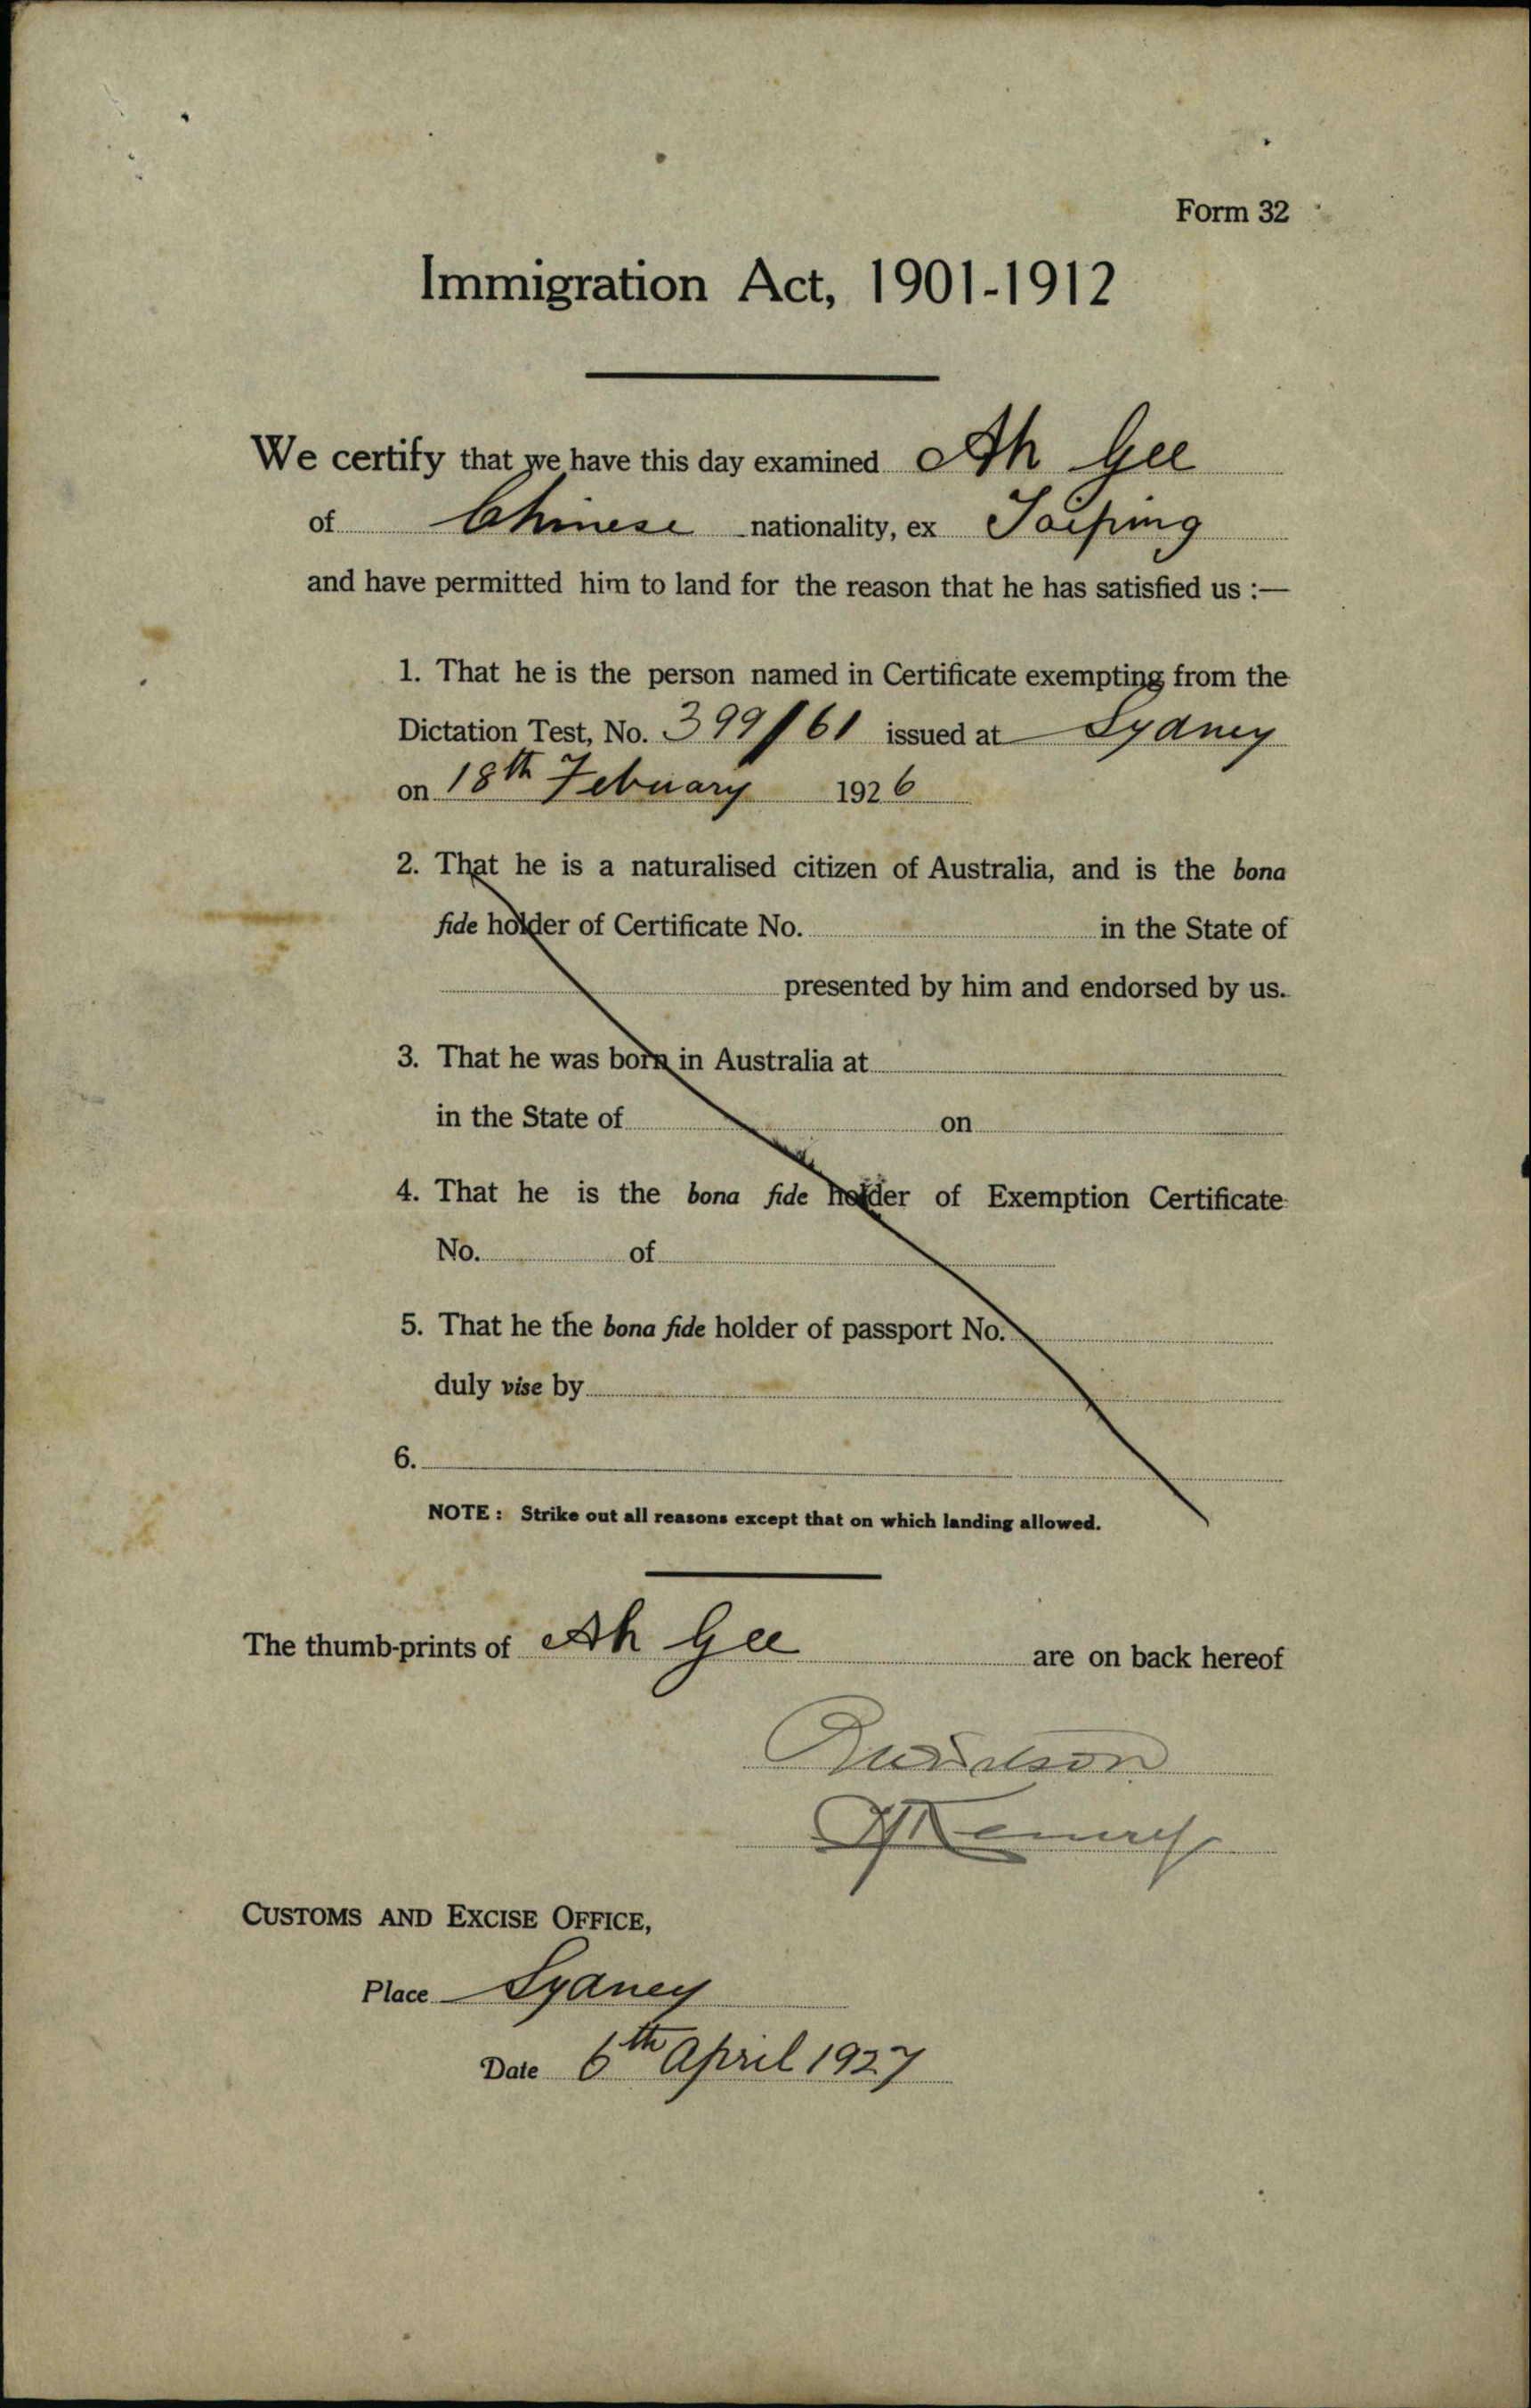 Form 32
Immigration Act, 1901-1912
We certify that we have this day examined Ah Gee
of Chinese nationality, ex Taiping
and have permitted him to land for the reason that he has satisfied us :—
1. That he is the person named in Certificate exempting from the
Dictation Test, No. 399/61 issued at Sydney
on 18th Febuary 1926
2. That he is a naturalised citizen of Australia, and is the bona
fide holder of Certificate No. in the State of
presented by him and endorsed by us.
3. That he was born in Australia at
in the State of on
4. That he is the bona fide holder of Exemption Certificate
No. of
5. That he the bona fide holder of passport No.
duly vise by
6.
NOTE : Strike out all reasons except that on which landing allowed.
The thumb-prints of Ah Gee are on back hereof
CUSTOMS AND EXCISE OFFICE,
Place Sydney
Date 6th April 1927